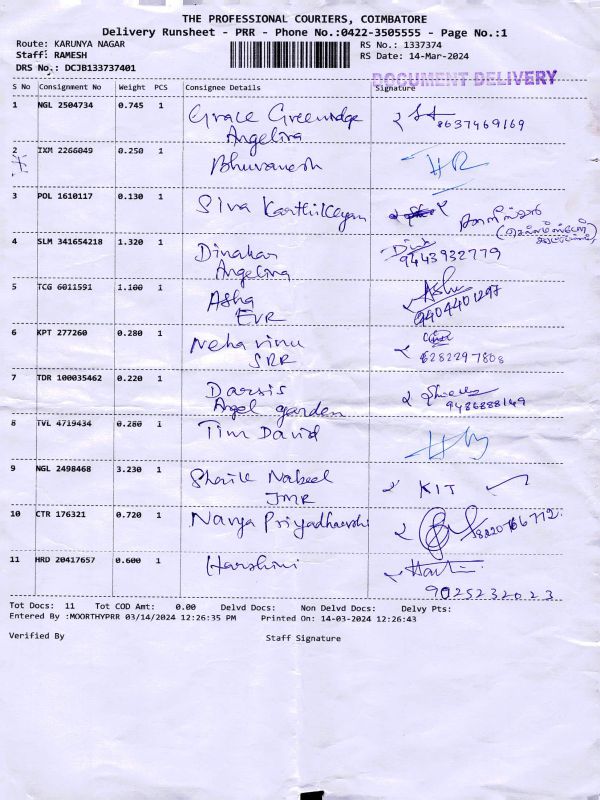 THE PROFESSIONAL COURIERS, COIMBATORE
Delivery Runsheet - PRR - Phone No.:0422-3505555 - Page No.:1
Route: KARUNYA NAGAR
RS No.: 1337374
Staff: RAMESH
RS Date: 14-Mar-2024
DRS No.: DCJB133737401
DOCUMENT DELIVERY
S No Consignment No Weight PCS Consignee Details Signature
1 NGL 2504734 0.745 1 Grace Greenidge
8637469169
Angelina
2 IXM 2266049 0.250 1 Bhuvanesh
3 POL 1610117 0.130 1 Siva Karthikeyan
4 SLM 341654218 1.320 1 Dinakar
Angelina
9443932779
5 TCG 6011591 1.100 1 Asha
EVR
9404401297
6 KPT 277260 0.280 1 Neha vinu
SRR
6282297808
7 TDR 100035462 0.220 1 Darsis
Angel garden
9486888149
8 TVL 4719434 0.280 1 Tim David
9 NGL 2498468 3.230 1 Sharik Nabeel
JMR
KIT
10 CTR 176321 0.720 1 Navya Priyadharshi
11 HRD 20417657 0.600 1 Harshini
9025232023
Tot Docs: 11 Tot COD Amt: 0.00 Delvd Docs: Non Delvd Docs: Delvy Pts:
Entered By :MOORTHYPRR 03/14/2024 12:26:35 PM Printed On: 14-03-2024 12:26:43
Verified By Staff Signature